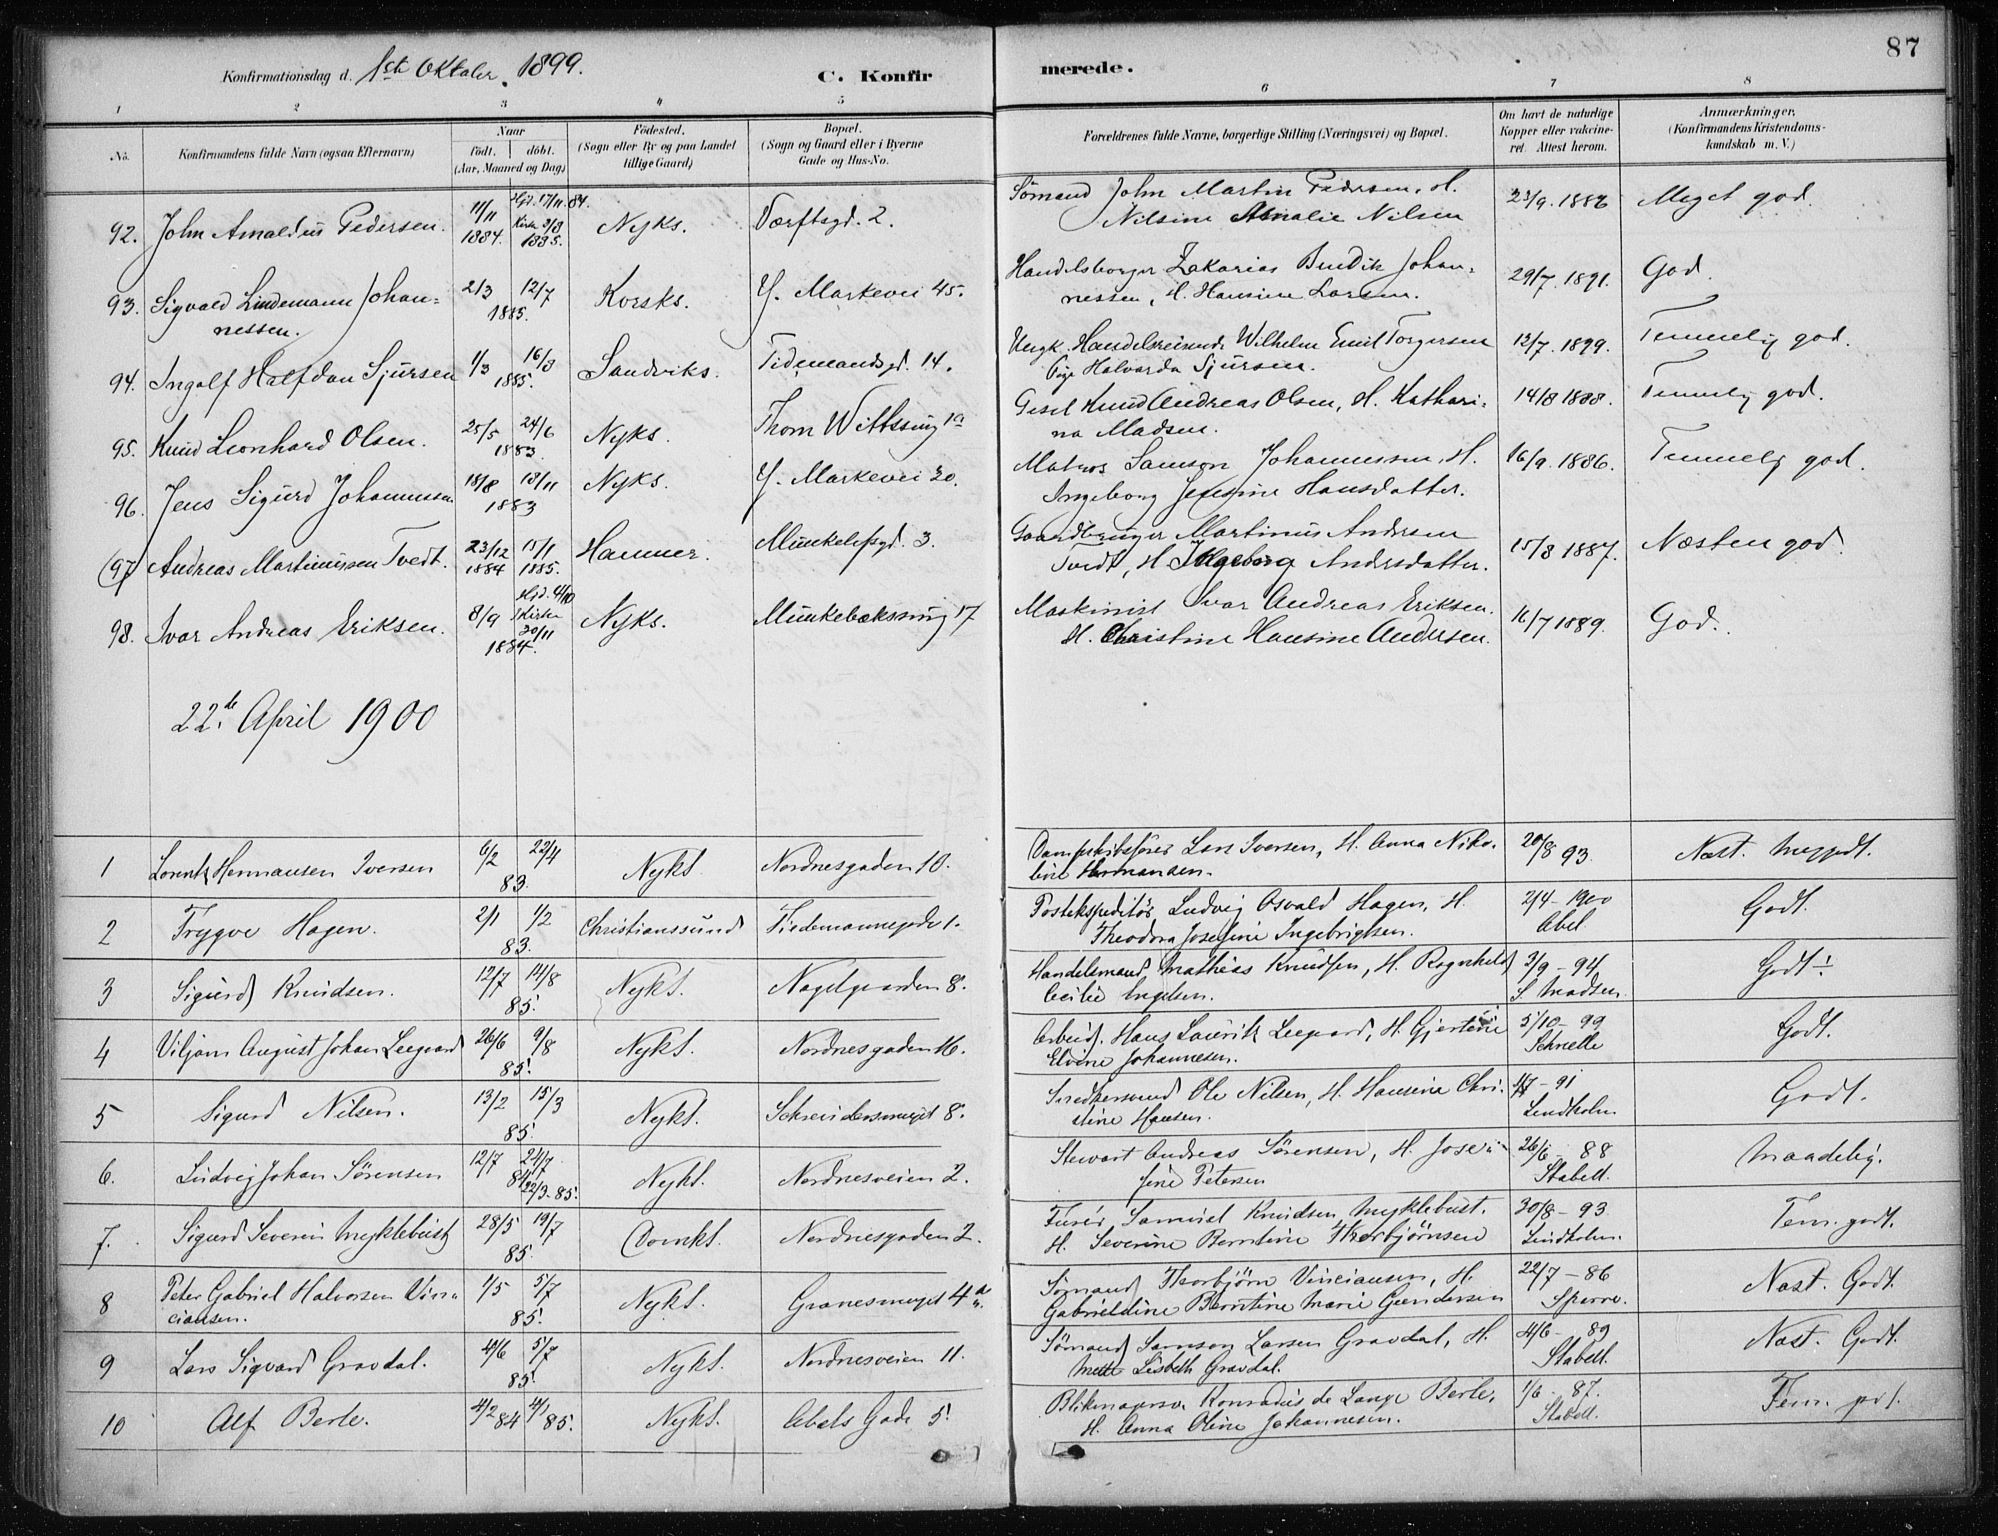 87
Konfirmationsdag d. 1ste Oktober 1899.
C. Konfir merede.
1 2 3 4 5 6 7 8
No.
Konfirmandens fulde Navn (ogsaa Efternavn)
Naar
födt. döbt.
(Aar, Maaned og Dag)
Födested.
(Sogn eller By og paa Landet
tillige Gaard)
Bopæl.
(Sogn og Gaard eller i Byerne
Gade og Hus-No.
Forældrenes fulde Navne, borgerlige Stilling (Næringsvei) og Bopæl.
Om havt de naturlige
Kopper eller vakcine-
ret. Attest herom.
Anmærkninger.
(Konfirmandens Kristendoms-
kundskab m. V.)
92. John Arnoldus Pedersen. 11/11 1884. Hjd. 17/11 84. Kirke 3/3 1885. Nyks. Værftsgd. 2. Sömand John Martin Pedersen, H. 23/9. 1886 Meget god.
Nilsine Amalie Nilsen
93. Sigvald Lindemann Johan- 2/3 12/7 1885. Korsks. Y. Markevei 45. Handelsborger Zakarias Bendik Johan- 29/7. 1891. God.
nessen. nessen, H. Hansine Larsen.
94. Ingolf Halfdan Sjursen 1/3 16/3 1885. Sandviks. Tidemandsgd. 14. Ungk. Handelsreisende Wilhelm Emil Torgersen 12/7. 1899. Temmelig god.
Pige Halvarda Sjursen.
95. Knud Leonhard Olsen. 25/5 24/6 1883. Nyks. Thom Wittssmug 1a Gesel Knud Andreas Olsen, H. Kathari- 14/8 1888. Temmelig god.
na Madsen.
96. Jens Sigurd Johannessen 18/8 18/11 1883 Nyks. Y. Markevei 30. Matros Samson Johannessen, H. 16/9. 1886. Temmelig god.
Ingeborg Jensine Hansdatter.
(97) Andreas Martinussen Tvedt. 23/12 1884 15/1 1885. Hammer. Munkelifsgd. 3. Gaardbruger Martinus Andersen 15/8 1887. Næsten god.
Tvedt, H. Ingeborg Andersdatter.
98. Ivar Andreas Eriksen. 8/9 Hjd. 4/10 Kirken 30/11 1884. Nyks. Munkebækssmug 17 Maskinist Ivar Andreas Eriksen. 16/7 1889. God.
H. Christine Hansine Andersen.
22de April 1900
1 Lorentz Hermansen Iversen 6/2 22/4 83. Nykl. Nordnesgaden 10. Dampskibsfører Lars Iversen, H. Anna Niko- 20/8 93. Næst. megodt.
line Hermansen.
2 Trygve Hagen. 2/1 1/2 83. Christianssund Tidemannsgade 1. Postekspeditör Ludvig Osvald Hagen, H. 2/4 - 1900 Godt.
Theodora Josefine Ingebrigtsen. Abel.
3 Sigurd Knudsen. 12/7 14/8 85. Nykl. Nagelgaarden 8. Handelsmand Mathias Knudsen, H. Ragnhild 3/9 - 94 Godt!
Cecilie Engelsen. S. Madsen.
4 Viljam August Johan Leegaard 26/6 9/8 85. Nykl. Nordnesgaden 16. Arbeid. Hans Laurits Leegaard, H. Gjertine 5/10 - 99 Godt.
Elvine Johannesen. Schnelle
5 Sigurd Nilsen. 13/2 15/3 85. Nykl. Schreudersmuget 8. Snedkersvend Ole Nilsen, H. Hansina Chri- - 91 Godt.
stine Hansen. Lindholm.
6. Ludvig Johan Sørensen 12/7 24/7 84 22/3-85. Nykl. Nordnesveien 2. Stewart Andreas Sørensen, H. Jose- 26/6 - 88 Maadelig.
fine Petersen Stabell.
7. Sigurd Severin Myklebust 28/5 19/7 85. Domkl. Nordnesgaden 2. Furér Samuel Knudsen Myklebust. 30/8 - 93. Tem. godt.
H. Severine Berntine Thorbjörnsen Lindholm.
8 Peter Gabriel Halvorsen Vin- 1/5 5/7 85. Nykl. Granesmuget 4a. Sømand Thorbjörn Vinciansen, H. 22/7 - 86 Næst. Godt.
ciansen. Gabrieldine Berntine Marie Gundersen Sparre.
9 Lars Sigvard Gravdal. 5/7 85. Nykl. Nordnesveien 11. Sømand Samson Larsen Gravdal, H. 4/6 - 89 Næst. Godt.
Mette Lisbeth Gravdal. Stabell.
10 Alf Berle. 4/12 84 4/1 85. Nykl. Abels Gade 5. Blikmagersv. Konradus de Lange Berle, 1/6 - 87. Tem. godt.
H. Anna Oline Johannesen. Stabell.